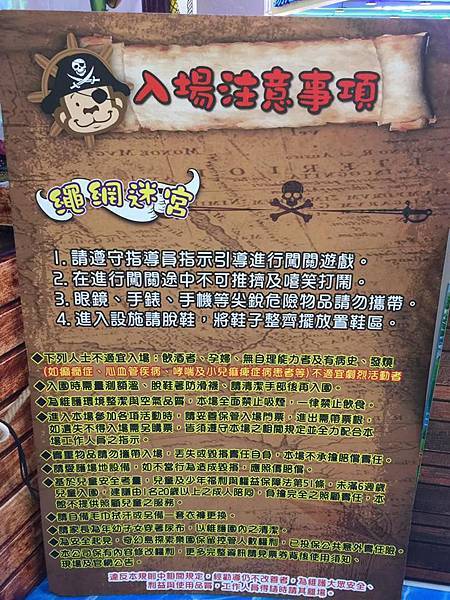 入場注意事項
繩網迷宮
1. 請遵守指導員指示引導進行闖關遊戲。
2. 在進行闖關途中不可推擠及嘻笑打鬧。
3. 眼鏡、手錶、手機等尖銳危險物品請勿攜帶。
4. 進入設施請脫鞋，將鞋子整齊擺放置鞋區。
◆下列人士不適宜入場：飲酒者、孕婦、無自理能力者及有病史、發燒
(如癲癇症、心血管疾病、哮喘及小兒麻痺症病患者等)不適宜劇烈活動者
◆入園時需量測額溫、脫鞋著防滑襪、請清潔手部後再入園。
◆為維護環境整潔與空氣品質，本場全面禁止吸煙，一律禁止飲食。
◆進入本場參加各項活動時，請妥善保管入場門票，進出需帶票根，
如遺失不得入場需另購票，皆須遵守本場之相關規定並全力配合本
場工作人員之指示。
◆貴重物品請勿攜帶入場，丟失或毀損責任自負，本場不承擔賠償責任。
◆請愛護場地設備，如不當行為造成毀損，應照價賠償。
◆基於兒童安全考量，兒童及少年福利與權益保障法第51條，未滿6週歲
兒童入園，建議由1名20歲以上之成人陪同，負擔完全之照顧責任，本
館不提供照顧兒童之服務。
◆請自備毛巾拭汗或另備一套衣褲更換。
◆請家長為年幼子女穿著尿布，以維護園內之清潔。
◆為安全起見，奇幻島探索樂園保留控管人數權利，已投保公共意外責任險。
◆本公司保有內容修改權利，更多完整資訊請見票券背後使用須知、
現場及官網公告。
違反本規則中相關規定，經勸導仍不改善者，為維護大眾安全、
利益與使用品質，工作人員得隨時請其離場。